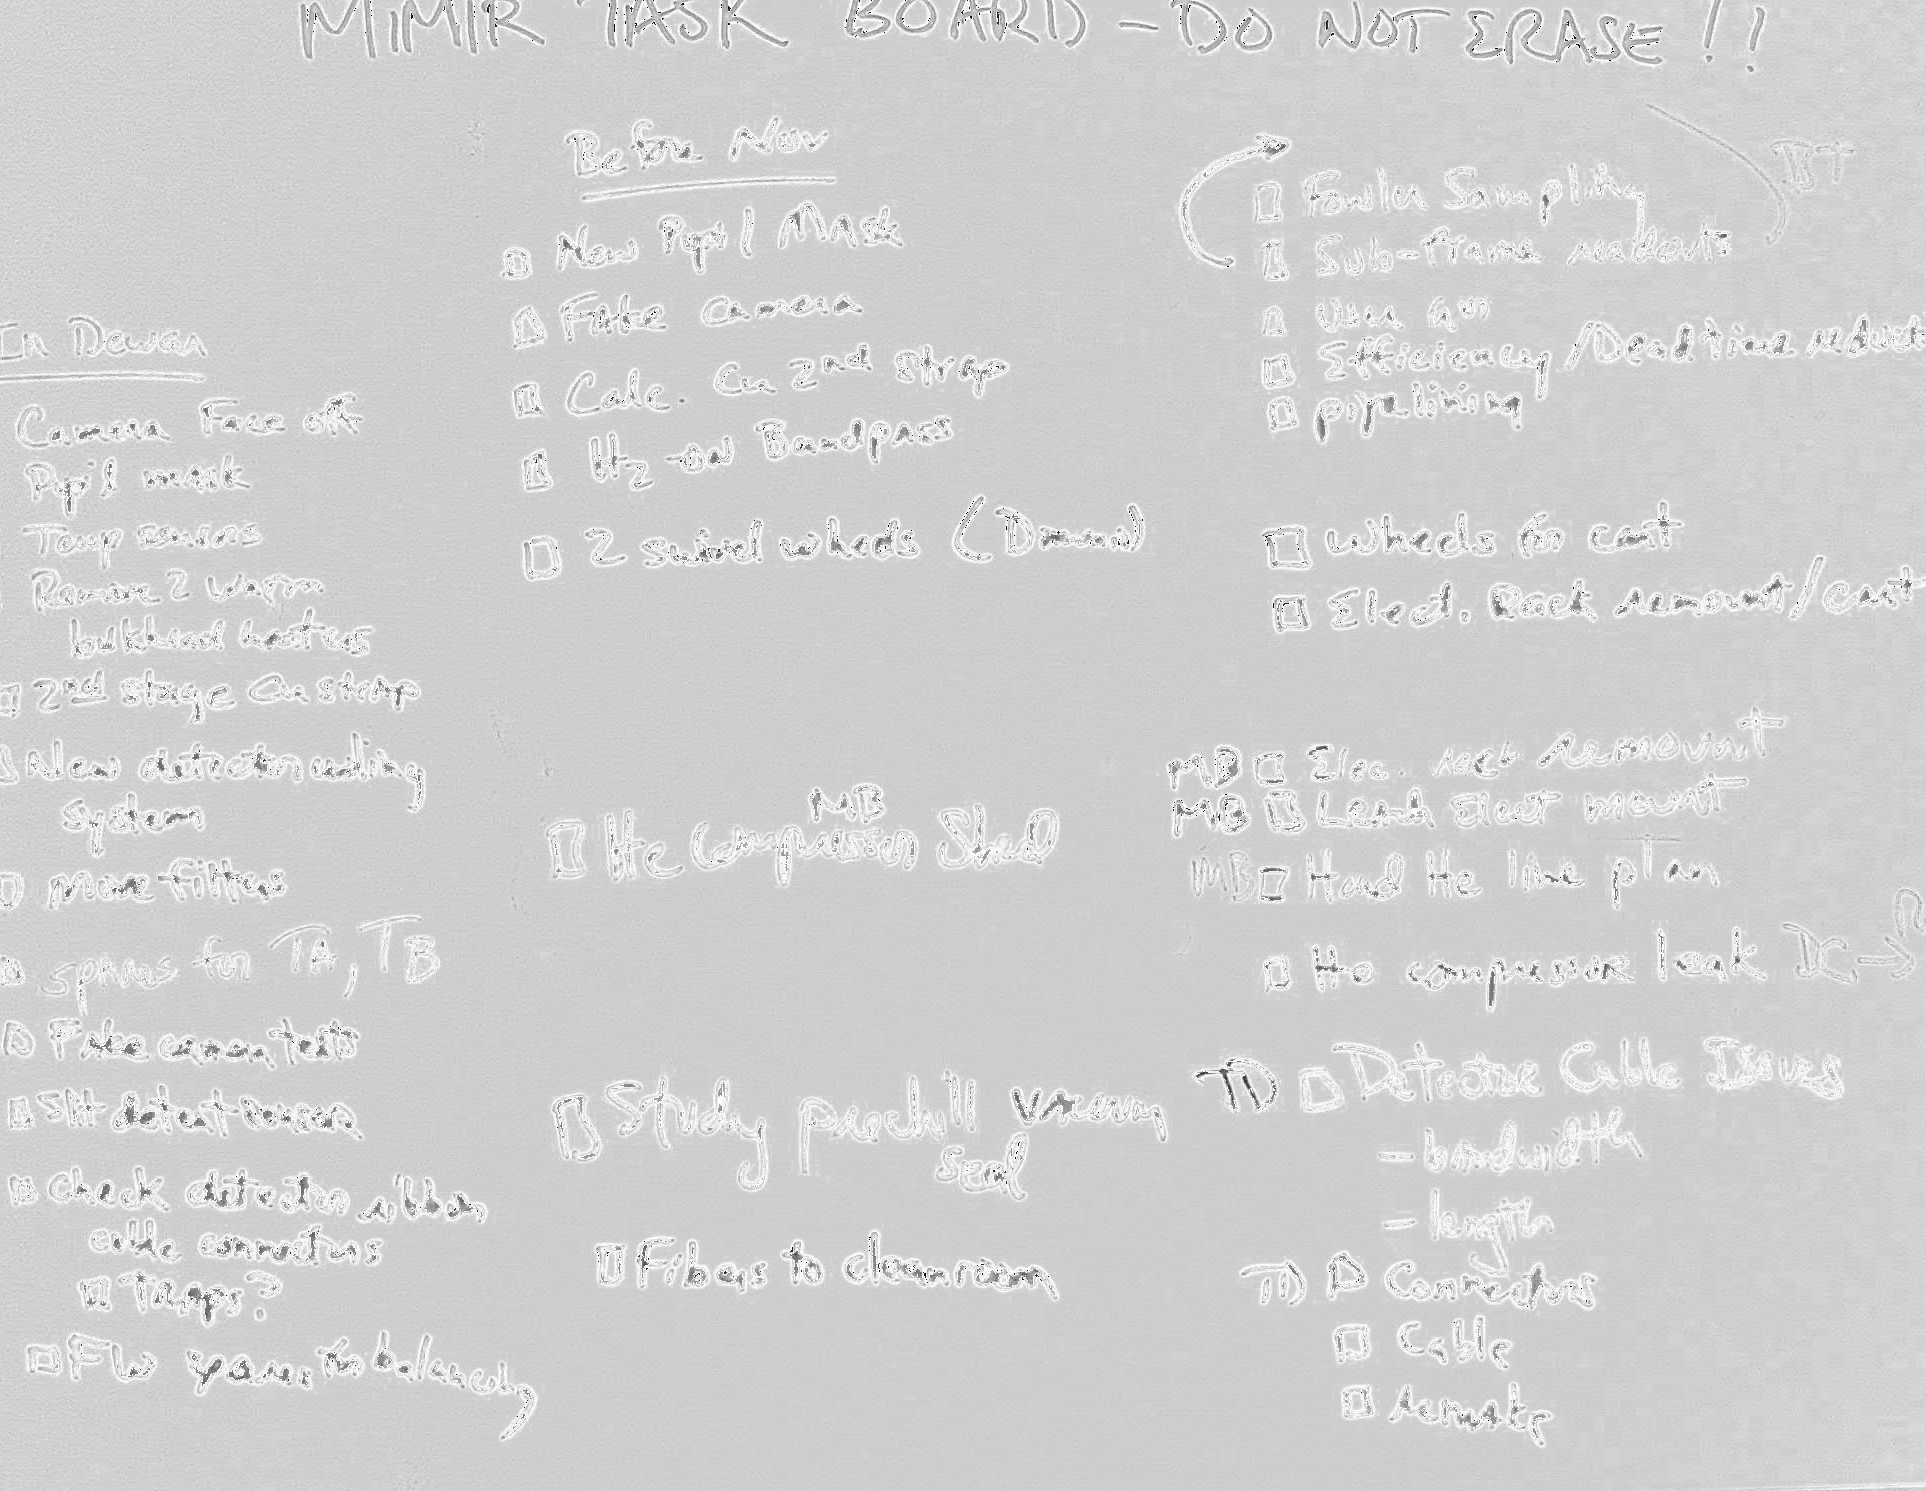 MIMIR TASK BOARD - DO NOT ERASE!!
In Dewar
Camera Face off
Pupil mask
Temp sensors
Remove 2 warm
bulkhead heaters
2nd stage Cu strap
New detector cooling
system
more filters
spares for TA, TB
Fake camera tests
detent sensor
check detector ribbon
cable connectors
Temps?
FW for balancing
Before Nov
New Pupil Mask
Fake camera
Calc. Cu 2nd strap
H2-on Bandpass
2 swivel wheels
MB
He Compressor Shed
Study prechill vacuum
seal
Fibers to cleanroom
BT
Fowler Sampling
Sub-frame readouts
Efficiency/Deadtime reduct
pipelining
Wheels for cart
Elect. Rack remount/cart
MB Elec. rack remount
MB Leach Elect mount
MB Hard He line plan
He compressor leak DC →
TD Detector Cable Issues
- bandwidth
- length
TD Connectors
Cable
remake